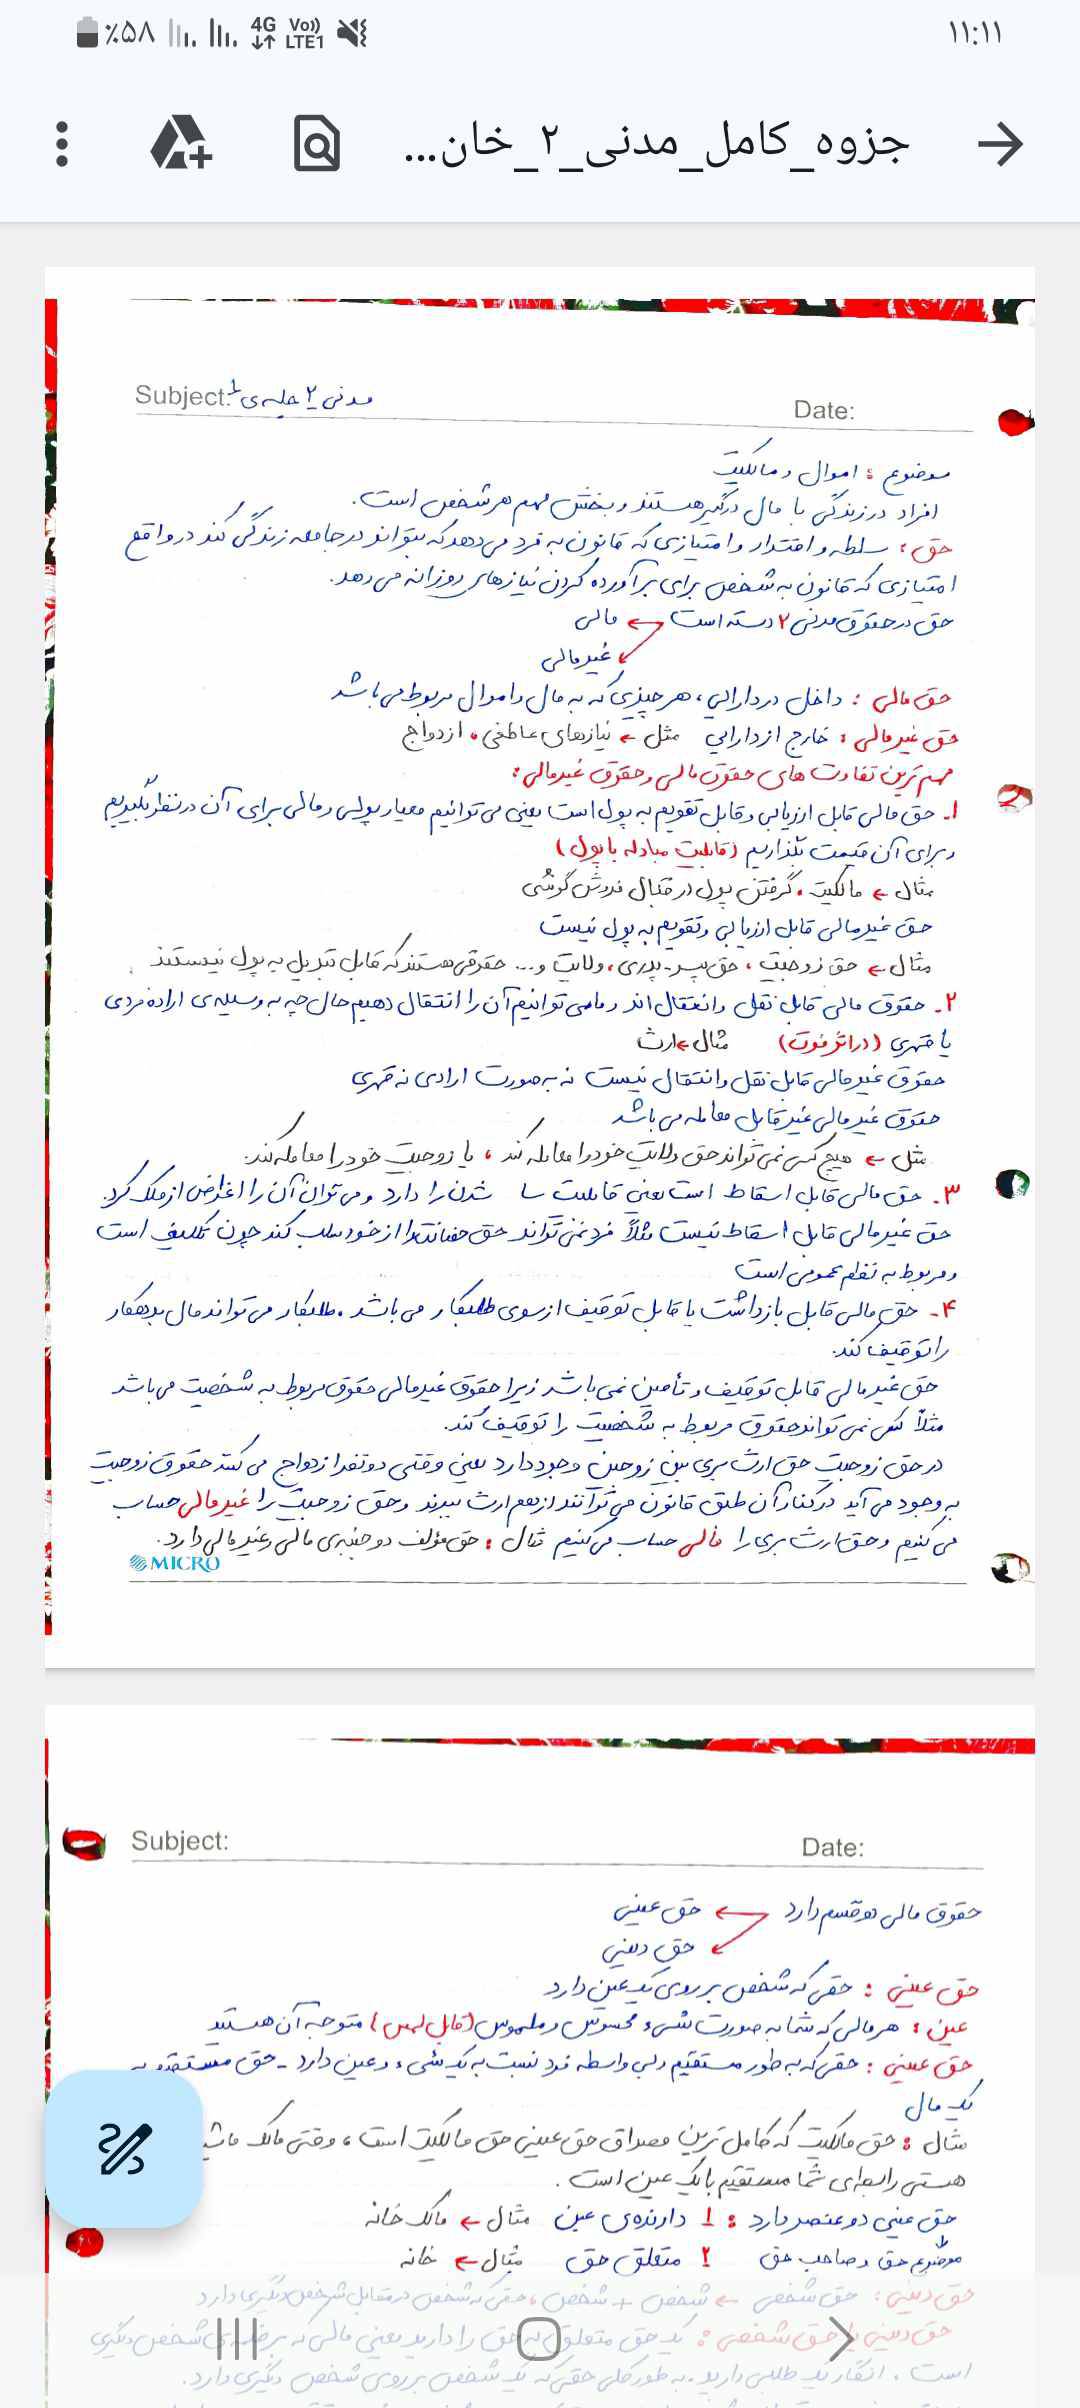 ۱۱:۱۱ ٪۵۸ 4G Vo)) LTE1
جزوه_کامل_مدنی_۲_خان...
Subject: مدنی ۲ جلسه ی ۱ Date:
موضوع : اموال و مالکیت
افراد در زندگی با مال درگیر هستند و بخش مهم هر شخص است.
حق : سلطه و اقتدار و امتیازی که قانون به فرد می دهد که بتواند در جامعه زندگی کند در واقع
امتیازی که قانون به شخص برای برآورده کردن نیازهای روزانه می دهد.
حق در حقوق مدنی ۲ دسته است ← مالی
غیرمالی
حق مالی : داخل در دارایی، هر چیزی که به مال و اموال مربوط می باشد
حق غیرمالی : خارج از دارایی مثل ← نیازهای عاطفی، ازدواج
مهم ترین تفاوت های حقوق مالی و حقوق غیرمالی :
۱. حق مالی قابل ارزیابی و قابل تقویم به پول است یعنی می توانیم معیار پولی و مالی برای آن در نظر بگیریم
و برای آن قیمت بگذاریم (قابلیت مبادله با پول)
مثال ← مالکیت، گرفتن پول در قبال فروش گوشی
حق غیرمالی قابل ارزیابی و تقویم به پول نیست
مثال ← حق زوجیت، حق پسر-پدری، ولایت و... حقوقی هستند که قابل تبدیل به پول نیستند
۲. حقوق مالی قابل نقل و انتقال اند و ما می توانیم آن را انتقال دهیم حال چه به وسیله ی اراده فردی
یا قهری (در اثر فوت) مثال ← ارث
حقوق غیرمالی قابل نقل و انتقال نیست نه به صورت ارادی نه قهری
حقوق غیرمالی غیرقابل معامله می باشد
مثل ← هیچ کس نمی تواند حق ولایت خود را معامله کند، یا زوجیت خود را معامله کند.
۳. حق مالی قابل اسقاط است یعنی قابلیت سا شدن را دارد و می توان آن را اعراض از ملک کرد.
حق غیرمالی قابل اسقاط نیست مثلاً فرد نمی تواند حق حضانت را از خود سلب کند چون تکلیف است
و مربوط به نظم عمومی است
۴- حق مالی قابل بازداشت یا قابل توقیف از سوی طلبکار می باشد، طلبکار می تواند مال بدهکار
را توقیف کند.
حق غیرمالی قابل توقیف و تأمین نمی باشد زیرا حقوق غیرمالی حقوق مربوط به شخصیت می باشد
مثلاً کسی نمی تواند حقوق مربوط به شخصیت را توقیف کند.
در حق زوجیت حق ارث بری بین زوجین وجود دارد یعنی وقتی دو نفر ازدواج می کنند حقوق زوجیت
به وجود می آید در کنار آن طبق قانون می توانند از هم ارث ببرند و حق زوجیت را غیرمالی حساب
می کنیم و حق ارث بری را مالی حساب می کنیم مثال : حق مؤلف دو جنبه ی مالی و غیرمالی دارد.
MICRO
Subject: Date:
حقوق مالی دو قسم دارد ← حق عینی
حق دینی
حق عینی : حقی که شخص بر روی یک عین دارد
عین : هر مالی که شما به صورت شیء محسوس و ملموس (قابل لمس) متوجه آن هستید
حق عینی : حقی که به طور مستقیم و بی واسطه فرد نسبت به یک شیء و عین دارد - حق مستقیم به
یک مال
مثال : حق مالکیت که کامل ترین مصداق حق عینی حق مالکیت است، وقتی مالک ماشی
هستی رابطه ی شما مستقیم با یک عین است.
حق عینی دو عنصر دارد : ۱ دارنده ی عین مثال ← مالک خانه
موضوع حق و صاحب حق ۲ متعلق حق مثال ← خانه
حق دینی : حق شخصی ← شخص + شخص، حقی که شخص در مقابل شخص دیگری دارد
حق دینی یا حق شخصی : یک حق متعلق به حق را دارید یعنی مالی که بر شخص دیگری
است، انگار یک طلبی دارید. به طور کلی حقی که یک شخص بر روی شخص دیگری دارد.